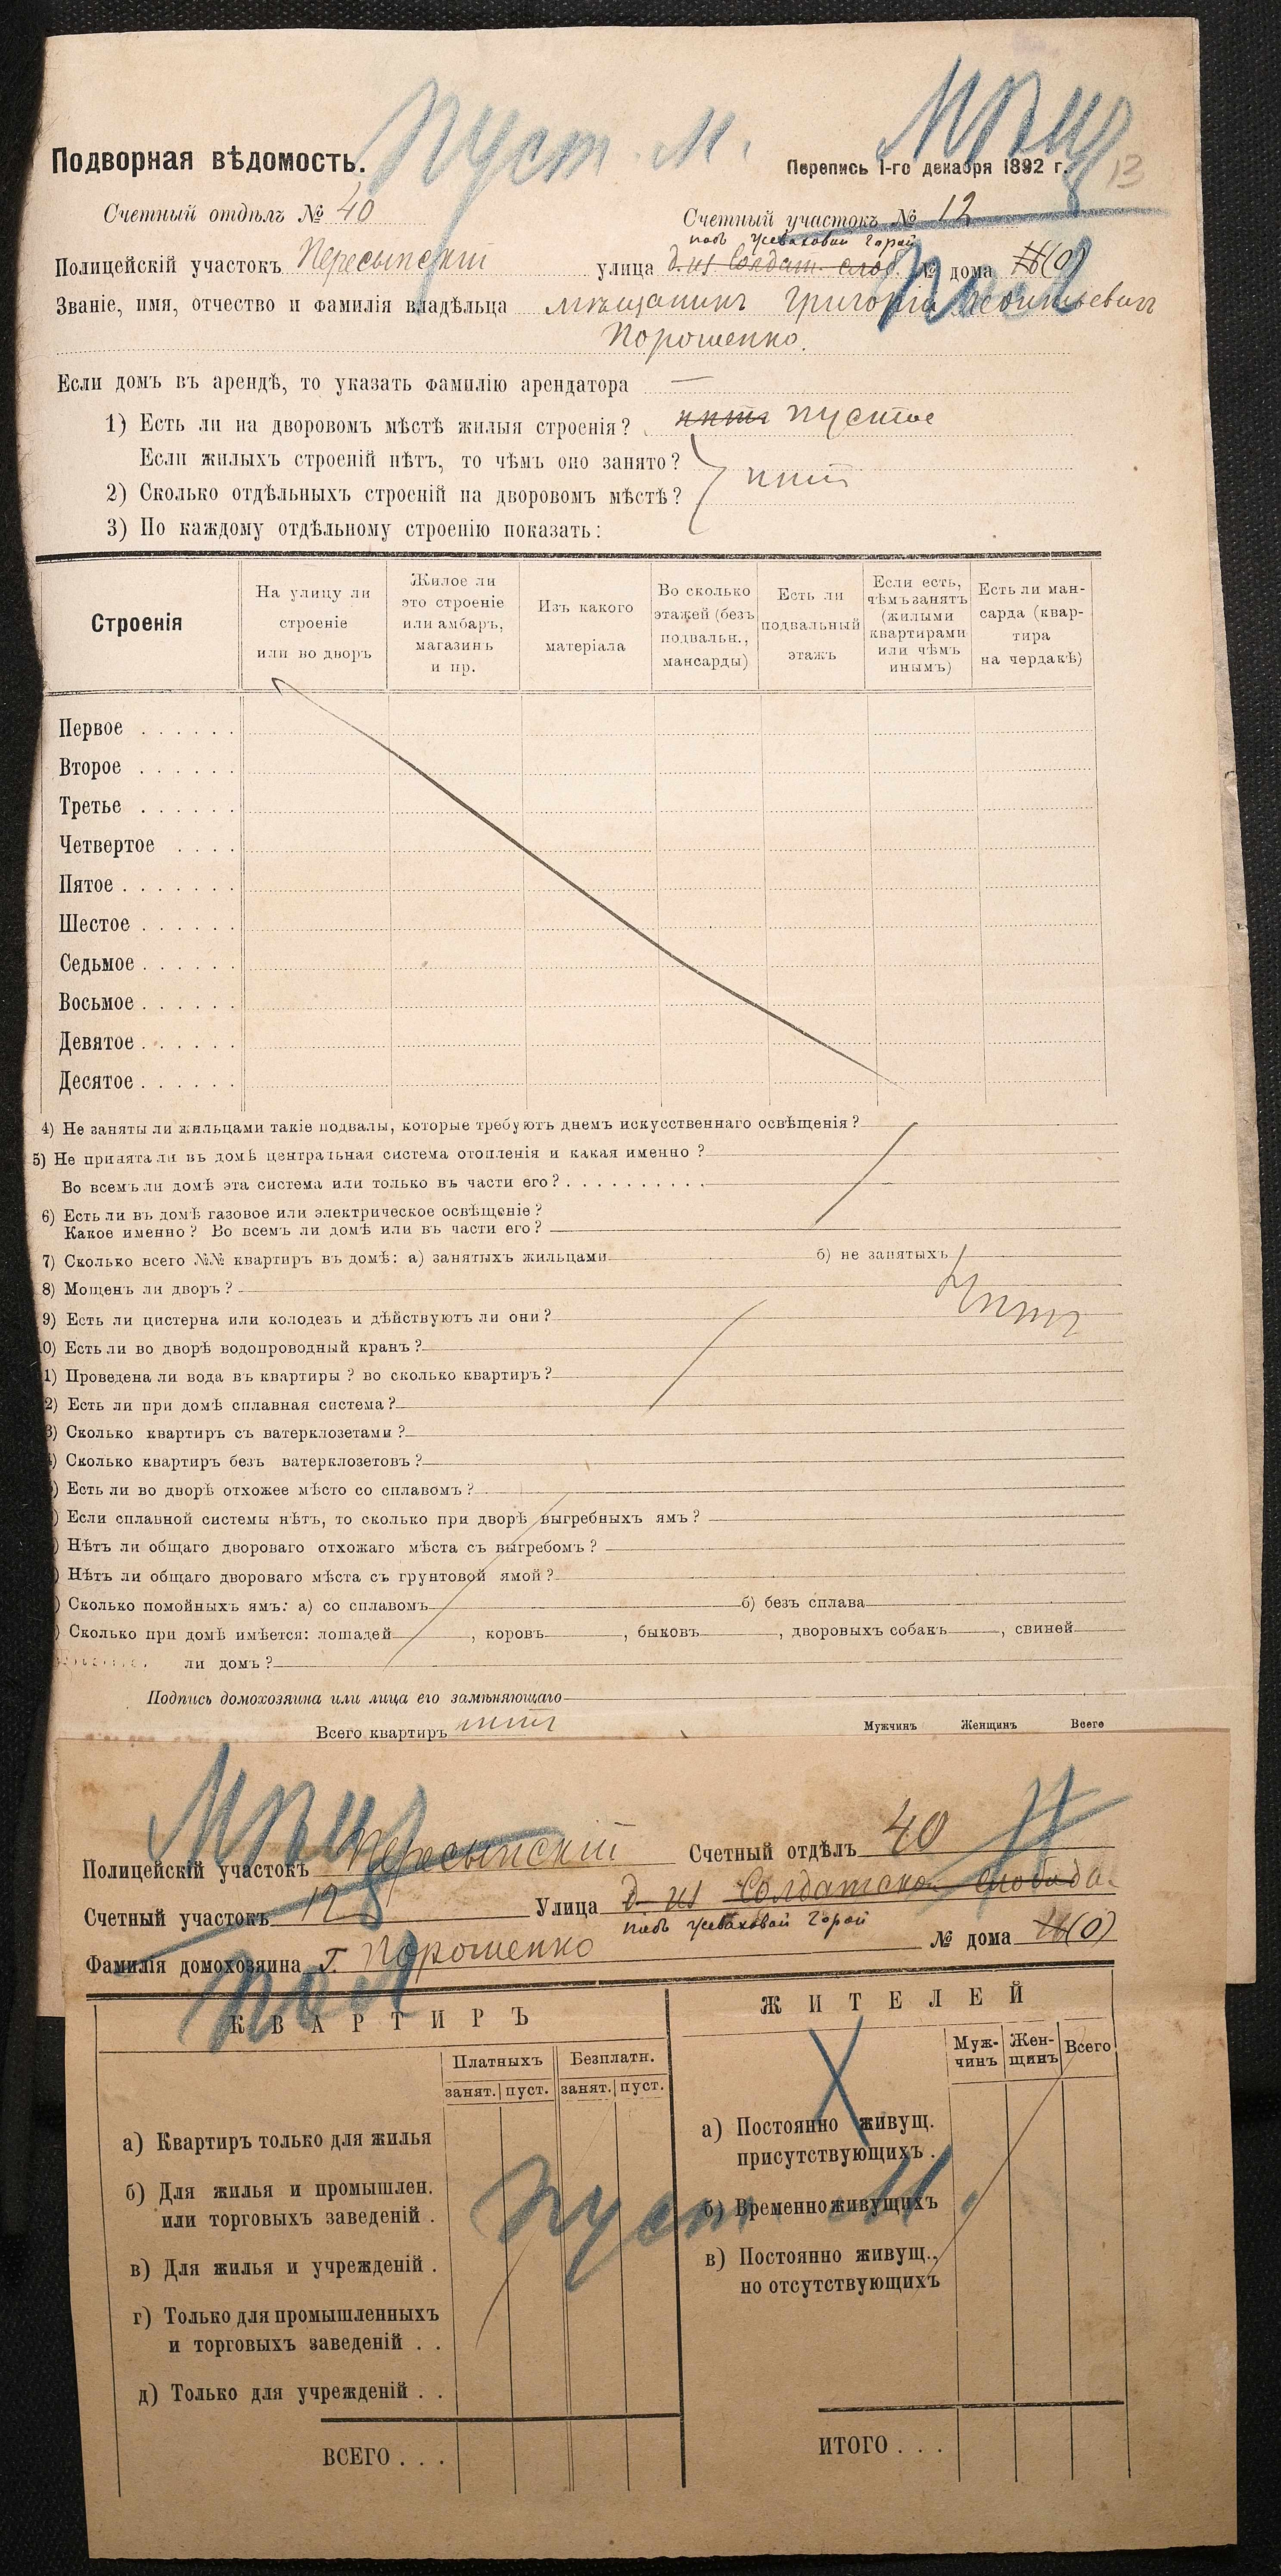 Пуст. М.
Подворная вѣдомость.
Перепись 1-го декабря 1892 г.
13
Счетный отдѣлъ № 40
Счетный участокъ № 12
подъ Жеваховой Горой
Полицейскій участокъ Пересыпскій улица д. из Солдат. слоб. № дома (0)
Званіе, имя, отчество и фамилія владѣльца мѣщанинъ Григорій
Порошенко.
Если домъ въ арендѣ, то указать фамилію арендатора —
1) Есть ли на дворовомъ мѣстѣ жилыя строенія? нѣтъ пустое
Если жилыхъ строеній нѣтъ, то чѣмъ оно занято?
нѣтъ
2) Сколько отдѣльныхъ строеній на дворовомъ мѣстѣ?
3) По каждому отдѣльному строенію показать:
Строенія
На улицу ли строеніе или во дворъ
Жилое ли это строеніе или амбаръ, магазинъ и пр.
Изъ какого матеріала
Во сколько этажей (безъ подвальн., мансарды)
Есть ли подвальный этажъ
Если есть, чѣмъ занятъ (жилыми квартирами или чѣмъ инымъ)
Есть ли мансарда (квартира на чердакѣ)
Первое . . . . . .
Второе . . . . . .
Третье . . . . . .
Четвертое . . . .
Пятое . . . . . . .
Шестое . . . . . .
Седьмое . . . . . .
Восьмое . . . . . .
Девятое . . . . . .
Десятое . . . . . .
4) Не заняты ли жильцами такіе подвалы, которые требуютъ днемъ искусственнаго освѣщенія?
5) Не принята ли въ домѣ центральная система отопленія и какая именно?
Во всемъ ли домѣ эта система или только въ части его? . . . . . . . . . .
6) Есть ли въ домѣ газовое или электрическое освѣщеніе?
Какое именно? Во всемъ ли домѣ или въ части его?
7) Сколько всего №№ квартиръ въ домѣ: а) занятыхъ жильцами б) не занятыхъ
8) Мощенъ ли дворъ?
Нѣтъ
9) Есть ли цистерна или колодезь и дѣйствуютъ ли они?
0) Есть ли во дворѣ водопроводный кранъ?
1) Проведена ли вода въ квартиры? во сколько квартиръ?
2) Есть ли при домѣ сплавная система?
3) Сколько квартиръ съ ватерклозетами?
) Сколько квартиръ безъ ватерклозетовъ?
) Есть ли во дворѣ отхожее мѣсто со сплавомъ?
) Если сплавной системы нѣтъ, то сколько при дворѣ выгребныхъ ямъ?
) Нѣтъ ли общаго двороваго отхожаго мѣста съ выгребомъ?
) Нѣтъ ли общаго двороваго мѣста съ грунтовой ямой?
) Сколько помойныхъ ямъ: а) со сплавомъ б) безъ сплава
) Сколько при домѣ имѣется: лошадей , коровъ , быковъ , дворовыхъ собакъ , свиней
ли домъ?
Подпись домохозяина или лица его замѣняющаго
Всего квартиръ нѣтъ
Мужчинъ Женщинъ Всего
Полицейскій участокъ Пересыпскій Счетный отдѣлъ 40
Счетный участокъ 12 Улица д. из Солдатская Слобода
подъ Жеваховой Горой
Фамилія домохозяина Г. Порошенко № дома (0)
КВАРТИРЪ
ЖИТЕЛЕЙ
Платныхъ Безплатн.
занят. пуст. занят. пуст.
Мужчинъ Женщинъ Всего
а) Квартиръ только для жилья
б) Для жилья и промышлен. или торговыхъ заведеній .
в) Для жилья и учрежденій .
г) Только для промышленныхъ и торговыхъ заведеній . .
д) Только для учрежденій . .
ВСЕГО . . .
а) Постоянно живущ. присутствующихъ .
б) Временно живущихъ
в) Постоянно живущ., но отсутствующихъ
ИТОГО . . .
Пуст. М.